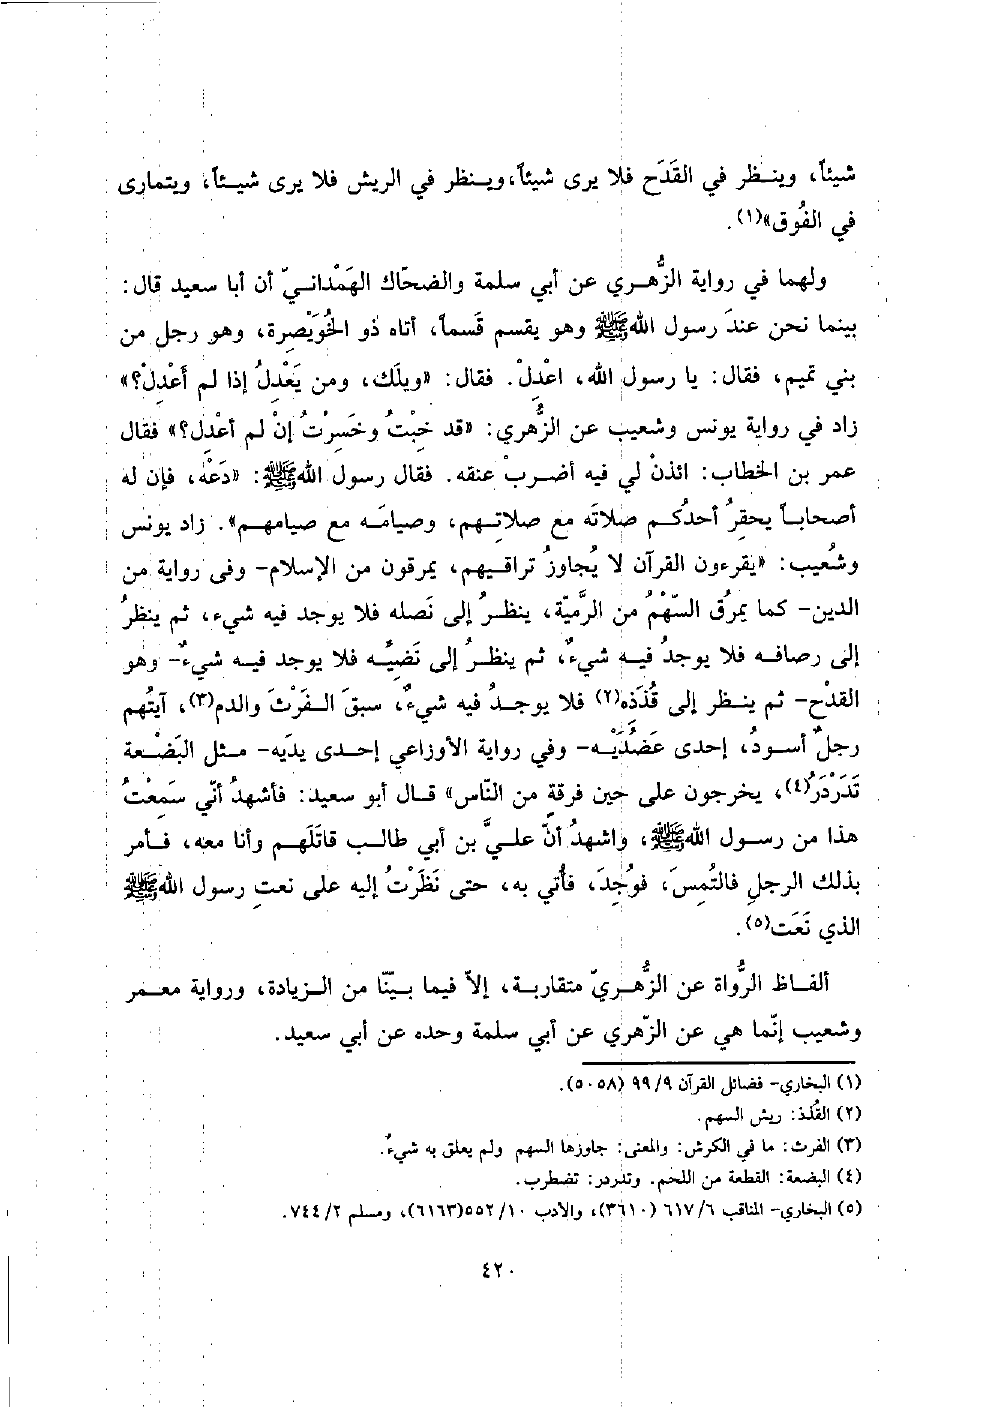 شيئاً، وينظر في القَدَح فلا يرى شيئاً، وينظر في الريش فلا يرى شيئاً، ويتمارى
في الفُوق»(١).
ولهما في رواية الزُّهري عن أبي سلمة والضحّاك الهَمْدانيّ أن أبا سعيد قال:
بينما نحن عندَ رسول اللهﷺ وهو يقسم قَسماً، أتاه ذو الخُوَيْصِرة، وهو رجل من
بني تميم، فقال: يا رسول الله، اعدِلْ. فقال: «ويلَك، ومن يَعْدِلُ إذا لم أَعْدِلْ؟»
زاد في رواية يونس وشعيب عن الزُّهري: «قد خِبْتُ وخَسِرْتُ إنْ لم أعْدِل؟» فقال
عمر بن الخطاب: ائذنْ لي فيه أضربْ عنقه. فقال رسول اللهﷺ: «دَعْه، فإن له
أصحاباً يحقِرُ أحدُكم صلاتَه مع صلاتِهم، وصيامَه مع صيامهم». زاد يونس
وشُعيب: «يقرءون القرآن لا يُجاوزُ تراقيهم، يمرقون من الإسلام- وفى رواية من
الدين- كما يمرُق السّهْمُ من الرَّميّة، ينظرُ إلى نَصله فلا يوجد فيه شيء، ثم ينظرُ
إلى رصافه فلا يوجدُ فيه شيءٌ، ثم ينظرُ إلى نَضِيَّه فلا يوجد فيه شيءٌ- وهو
القدْح- ثم ينظر إلى قُذَذه(٢) فلا يوجدُ فيه شيءٌ، سبقَ الفَرْثَ والدم(٣)، آيتُهم
رجلٌ أسودُ، إحدى عَضُدَيْه- وفي رواية الأوزاعي إحدى يدَيه- مثل البَضْعة
تَدَرْدَرُ(٤)، يخرجون على حين فرقةٍ من النّاس» قال أبو سعيد: فأشهدُ أنّي سَمِعْتُ
هذا من رسول اللهﷺ، واشهدُ أنّ عليَّ بن أبي طالب قاتَلَهم وأنا معه، فأمر
بذلك الرجلِ فالتُمِسَ، فوُجِدَ، فأُتي به، حتى نَظَرْتُ إليه على نعتِ رسول اللهﷺ
الذي نَعَت(٥).
ألفاظ الرُّواة عن الزُّهريّ متقاربة، إلاّ فيما بيّنّا من الزيادة، ورواية معمر
وشعيب إنّما هي عن الزّهري عن أبي سلمة وحده عن أبي سعيد.
(١) البخاري- فضائل القرآن ٩٩/٩ (٥٠٥٨).
(٢) القُذذ: ريش السهم.
(٣) الفرث: ما في الكرش: والمعنى: جاوزها السهم ولم يعلق به شيءٌ.
(٤) البضعة: القطعة من اللحم. وتدردر: تضطرب.
(٥) البخاري- المناقب ٦١٧/٦ (٣٦١٠)، والأدب ٥٥٢/١٠(٦١٦٣)، ومسلم ٧٤٤/٢.
٤٢٠